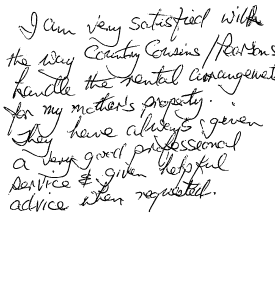 I am very satisfied with
the way Country Cousins / Pearsons
handle the rental arrangements
for my mother's property.
They have always given
a very good professional
service & given helpful
advice when requested.